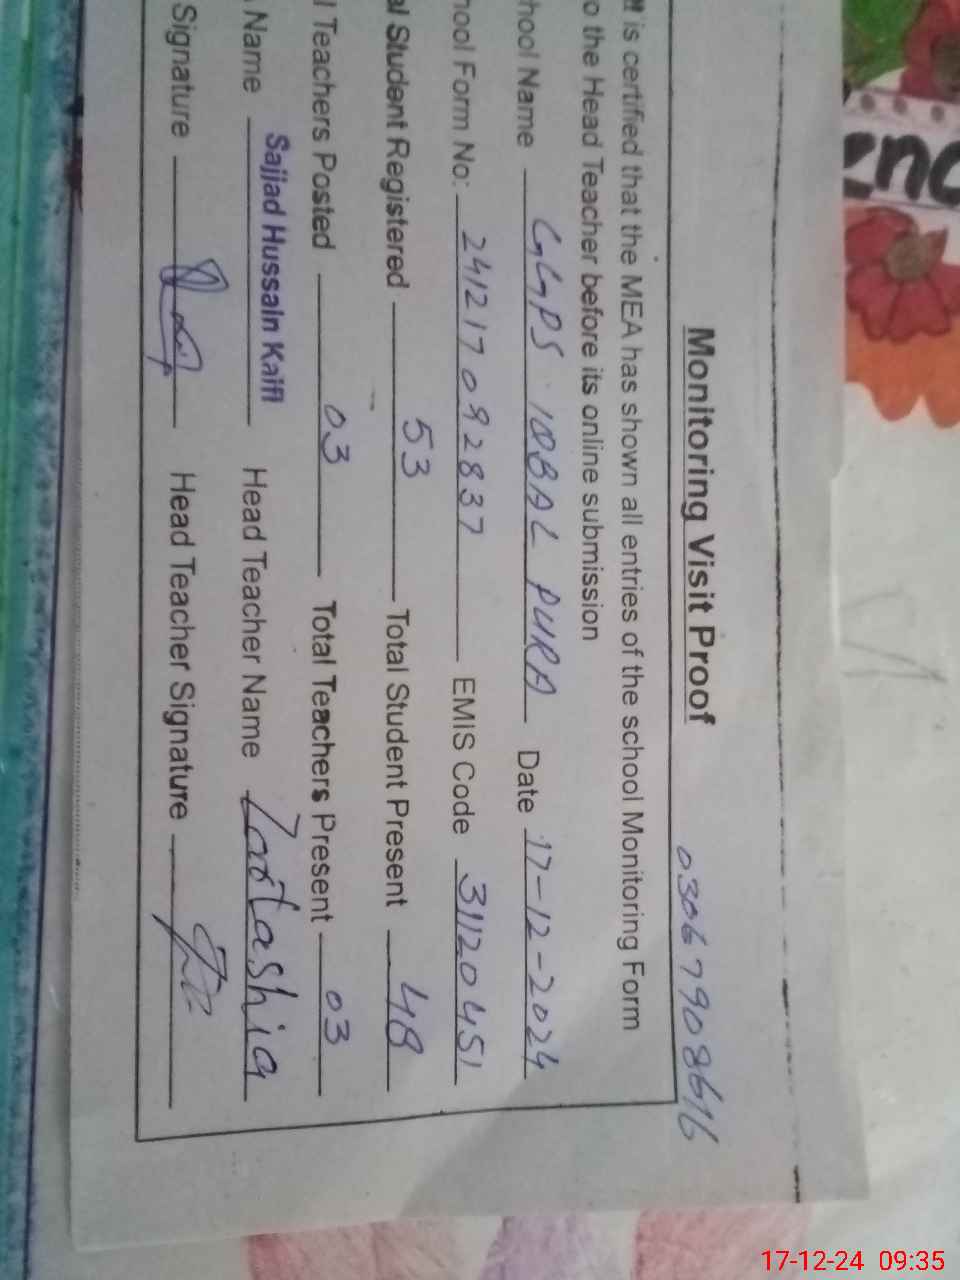 Monitoring Visit Proof
03067908616
is certified that the MEA has shown all entries of the school Monitoring Form
o the Head Teacher before its online submission
hool Name GGPS IQBAL PURA Date 17-12-2024
hool Form No: 241217092837 EMIS Code 31120451
al Student Registered 53 Total Student Present 48
l Teachers Posted 03 Total Teachers Present 03
Name Sajjad Hussain Kaifi Head Teacher Name Zartashia
Signature Head Teacher Signature
17-12-24 09:35